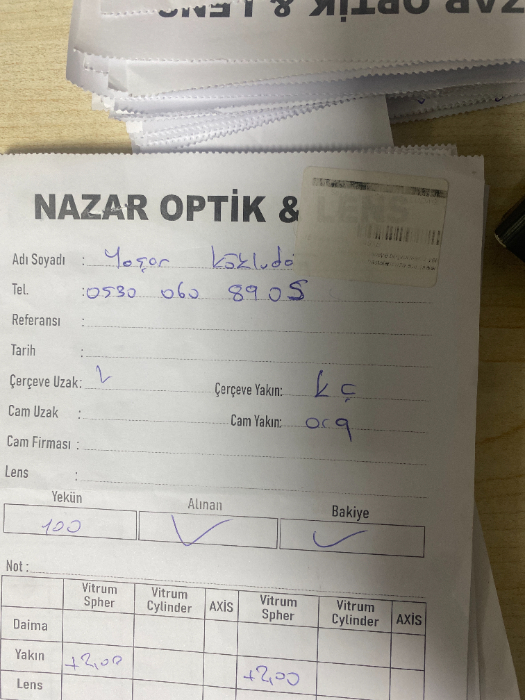 NAZAR OPTİK & LENS
Adı Soyadı : Yaşar
Tel. : 0530 060 8905
Referansı :
Tarih :
Çerçeve Uzak: Çerçeve Yakın: k ç
Cam Uzak : Cam Yakın: org
Cam Firması :
Lens :
Yekün Alınan Bakiye
100 ✓ ✓
Not :
Vitrum Spher Vitrum Cylinder AXİS Vitrum Spher Vitrum Cylinder AXİS
Daima
Yakın +2,00 +2,00
Lens